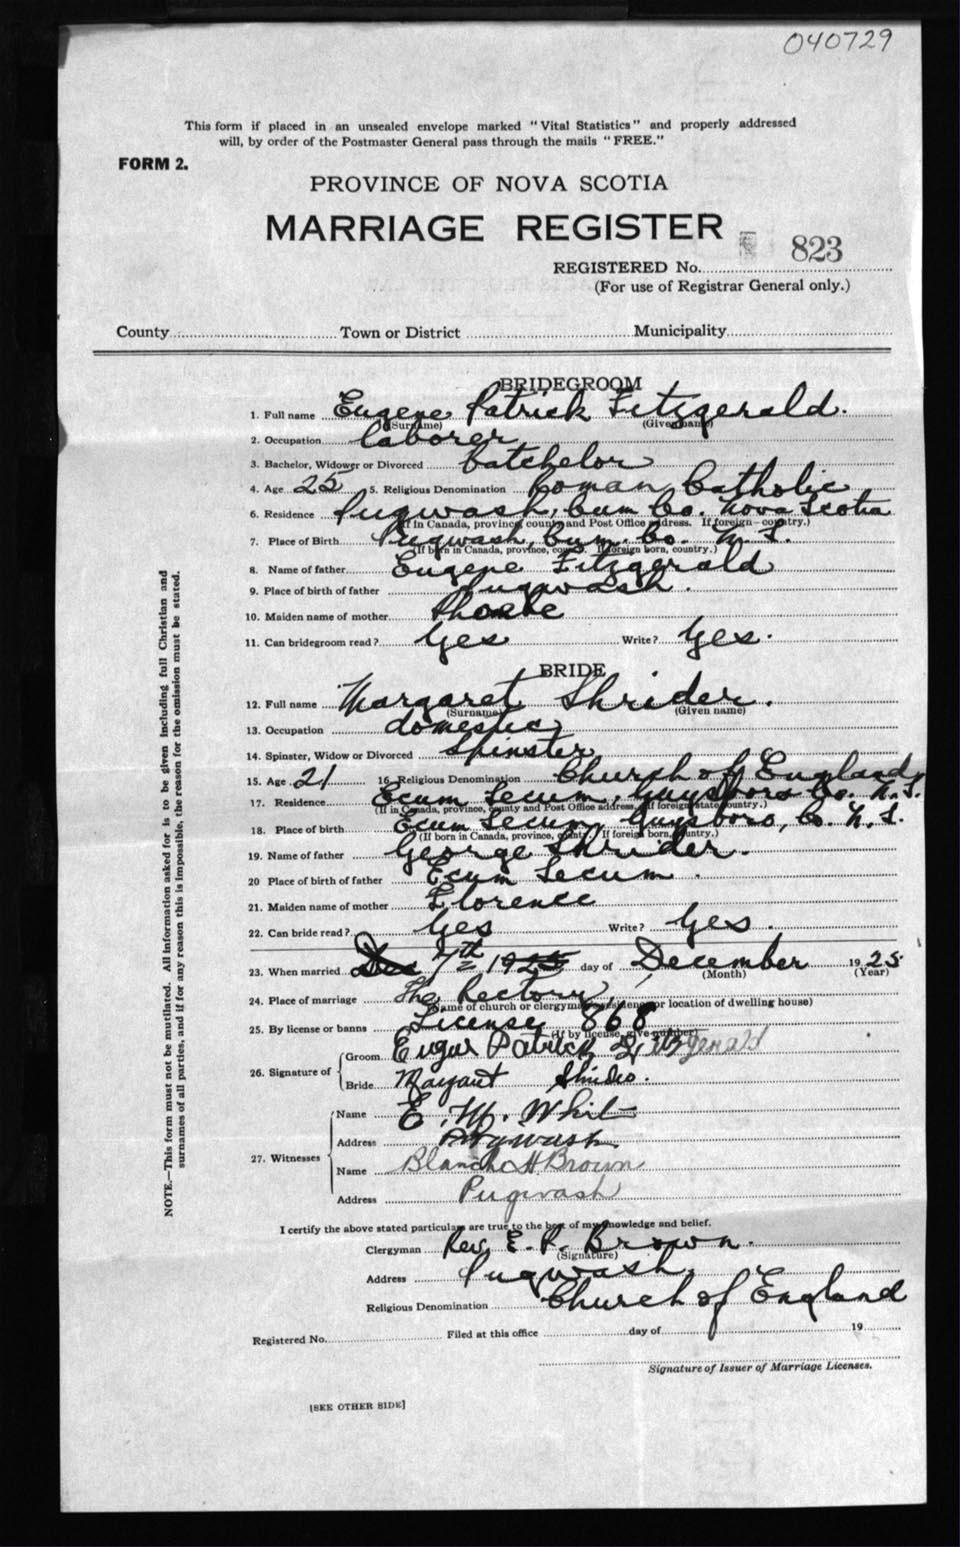 040729
This form if placed in an unsealed envelope marked "Vital Statistics" and properly addressed
will, by order of the Postmaster General pass through the mails "FREE."
FORM 2.
PROVINCE OF NOVA SCOTIA
MARRIAGE REGISTER
823
REGISTERED No.
(For use of Registrar General only.)
County Town or District Municipality
BRIDEGROOM
1. Full name Eugene Patrick Fitzgerald.
(Surname) (Given name)
2. Occupation laborer
3. Bachelor, Widower or Divorced Batchelor
4. Age 25 5. Religious Denomination Roman Catholic
6. Residence Pugwash, Cum Co. Nova Scotia
(If in Canada, province, county and Post Office address. If foreign—country.)
7. Place of Birth Pugwash, Cum. Co. N. S.
(If born in Canada, province, county. If foreign born, country.)
8. Name of father Eugene Fitzgerald
9. Place of birth of father Pugwash.
10. Maiden name of mother Phoebe
11. Can bridegroom read? Yes Write? Yes.
BRIDE
12. Full name Margaret Shrider.
(Surname) (Given name)
13. Occupation domestic
14. Spinster, Widow or Divorced Spinster
15. Age 21 16. Religious Denomination Church of England
17. Residence Ecum Secum, Guysboro Co. N.S.
(If in Canada, province, county and Post Office address, If foreign state country.)
18. Place of birth Ecum Secum, Guysboro, Co. N. S.
(If born in Canada, province, county. If foreign born, country.)
19. Name of father George Shrider.
20 Place of birth of father Ecum Secum.
21. Maiden name of mother Florence
22. Can bride read? Yes Write? Yes.
23. When married Dec 7th 1925 day of December 1925
(Month) (Year)
24. Place of marriage The Rectory
(Name of church or clergyman's residence or location of dwelling house)
25. By license or banns License 868
(If by license, give number)
26. Signature of
Groom Eugar Patrick Fitzgerald
Bride
27. Witnesses
Name E. M. Whit
Address Pugwash
Name Blanche H Brown
Address Pugwash
I certify the above stated particulars are true to the best of my knowledge and belief.
Clergyman Rev. E. P. Brown.
(Signature)
Address Pugwash.
Religious Denomination Church of England
Registered No. Filed at this office day of 19
Signature of Issuer of Marriage Licenses.
[SEE OTHER SIDE]
NOTE.—This form must not be mutilated. All information asked for is to be given including full Christian and
surnames of all parties, and if for any reason this is impossible, the reason for the omission must be stated.